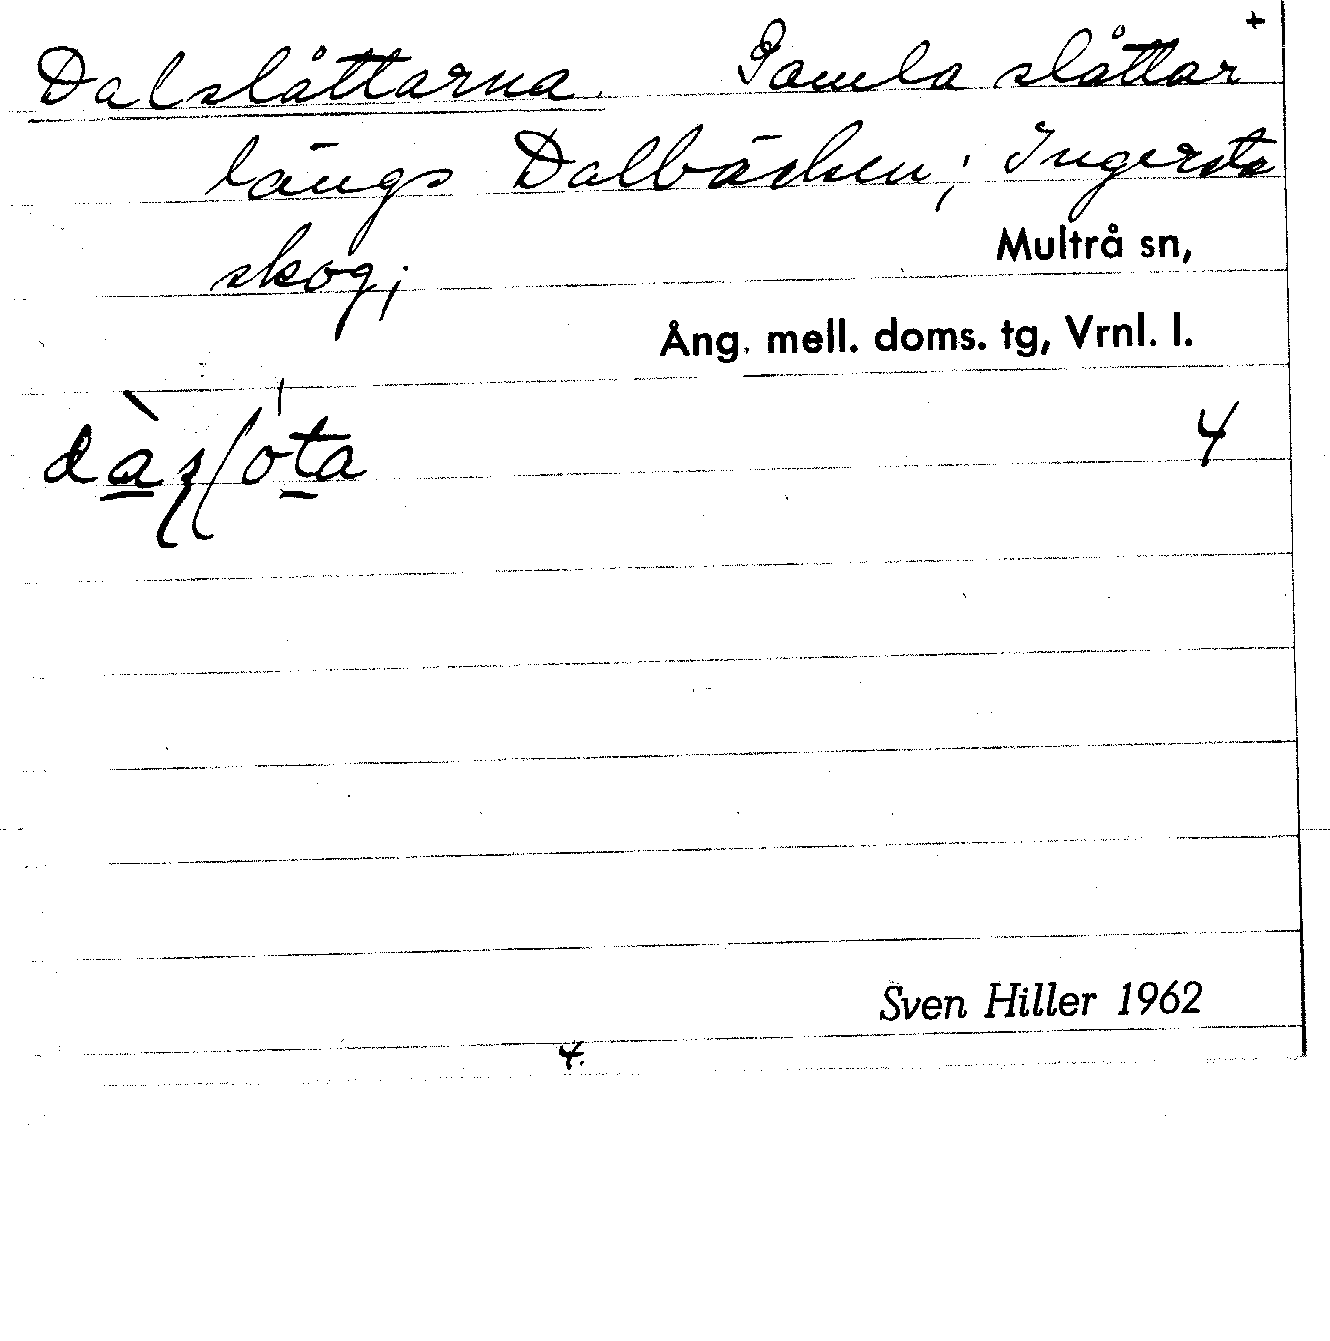 Dalslåttarna. Gamla slåttar +
längs Dalbäcken; Ingersta
skog;
Multrå sn,
Ång. mell. doms. tg, Vrnl. l.
4
Sven Hiller 1962
4.